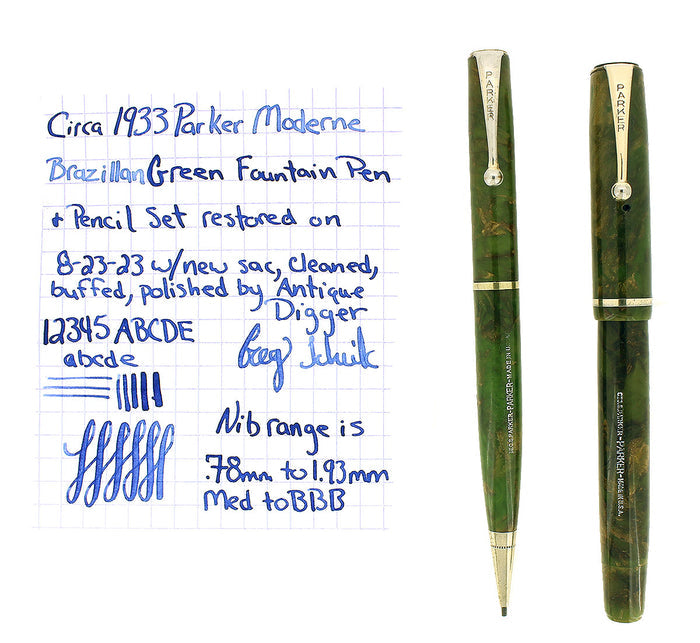 Circa 1933 Parker Moderne
Brazilian Green Fountain Pen
+ Pencil Set restored on
8-23-23 w/new sac, cleaned,
buffed, polished by Antique
Digger
12345 ABCDE
abcde
Nib range is
.78mm to 1.93mm
Med to BBB
PARKER
PARKER
PARKER-PARKER-MADE IN U.S.A.
PARKER-MADE IN U.S.A.